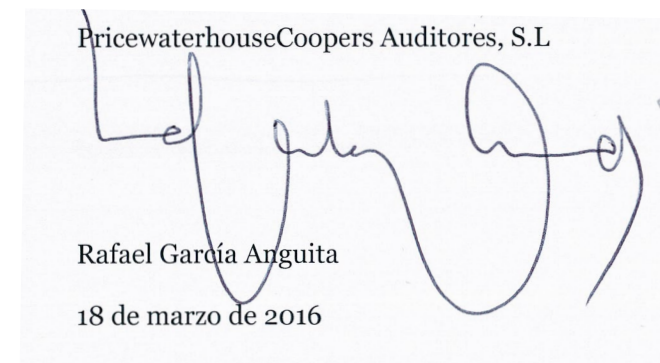 PricewaterhouseCoopers Auditores, S.L
Rafael García Anguita
18 de marzo de 2016